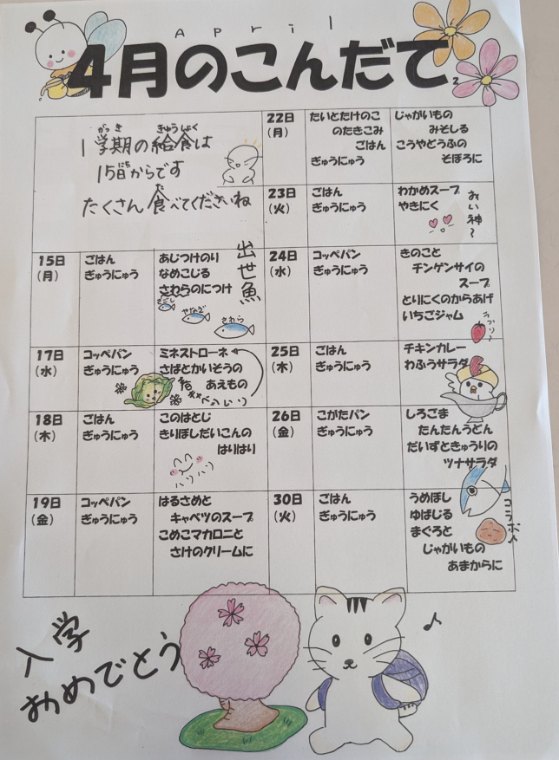 April
4月のこんだて
2
がっき きゅうしょく
1学期の給食は
にち
15日からです
た
たくさん食べてくださいね
15日
(月)
ごはん
ぎゅうにゅう
あじつけのり
なめこじる
さわらのにつけ
出世魚
さごし
やなぎ
さわら
17日
(水)
コッペパン
ぎゅうにゅう
ミネストローネ
さばとかいそうの
あえもの
18日
(木)
ごはん
ぎゅうにゅう
このはとじ
きりぼしだいこんの
はりはり
ハリハリ
19日
(金)
コッペパン
ぎゅうにゅう
はるさめと
キャベツのスープ
こめこマカロニと
さけのクリームに
22日
(月)
たいとたけのこ
のたきこみ
ごはん
ぎゅうにゅう
じゃがいもの
みそしる
こうやどうふの
そぼろに
23日
(火)
ごはん
ぎゅうにゅう
わかめスープ
やきにく
24日
(水)
コッペパン
ぎゅうにゅう
きのこと
チンゲンサイの
スープ
とりにくのからあげ
いちごジャム
25日
(木)
ごはん
ぎゅうにゅう
チキンカレー
わふうサラダ
26日
(金)
こがたパン
ぎゅうにゅう
しろごま
たんたんうどん
だいずときゅうりの
ツナサラダ
30日
(火)
ごはん
ぎゅうにゅう
うめぼし
ゆばじる
まぐろと
じゃがいもの
あまからに
入学
おめでとう